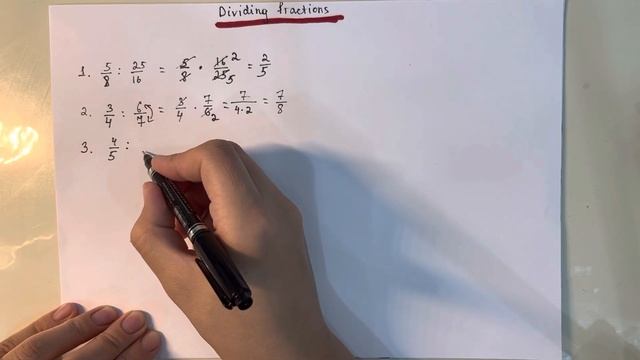 Dividing fractions
1. 5/8 : 25/16 = 5/8 · 16 2/25 5 = 2/5
2. 3/4 : 6/7 = 3/4 · 7/6 2 = 7/4·2 = 7/8
3. 4/5 :